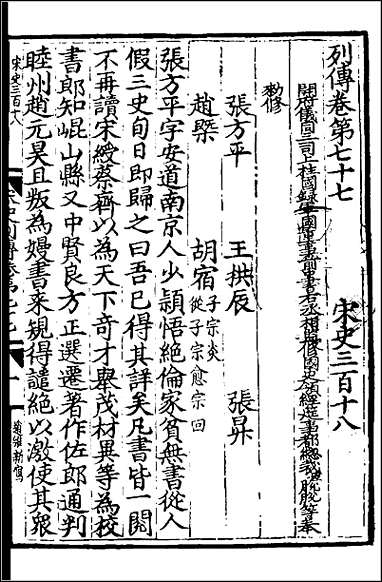 列傳卷第七十七　宋史三百十八
開府儀同三司上柱國錄軍國重事前中書右丞相監修國史領經筵事都總裁脫脫等奉
敕修
張方平　王拱辰　張昪
趙槩　胡宿子宗炎從子宗愈宗回
張方平字安道南京人少頴悟絕倫家貧無書從人
假三史旬日即歸之曰吾已得其詳矣凡書皆一閱
不再讀宋綬蔡齊以為天下奇才舉茂材異等為校
書郎知崐山縣又中賢良方正選遷著作佐郎通判
睦州趙元昊且叛為嫚書來規得譴絕以激使其衆
宋史三百十八